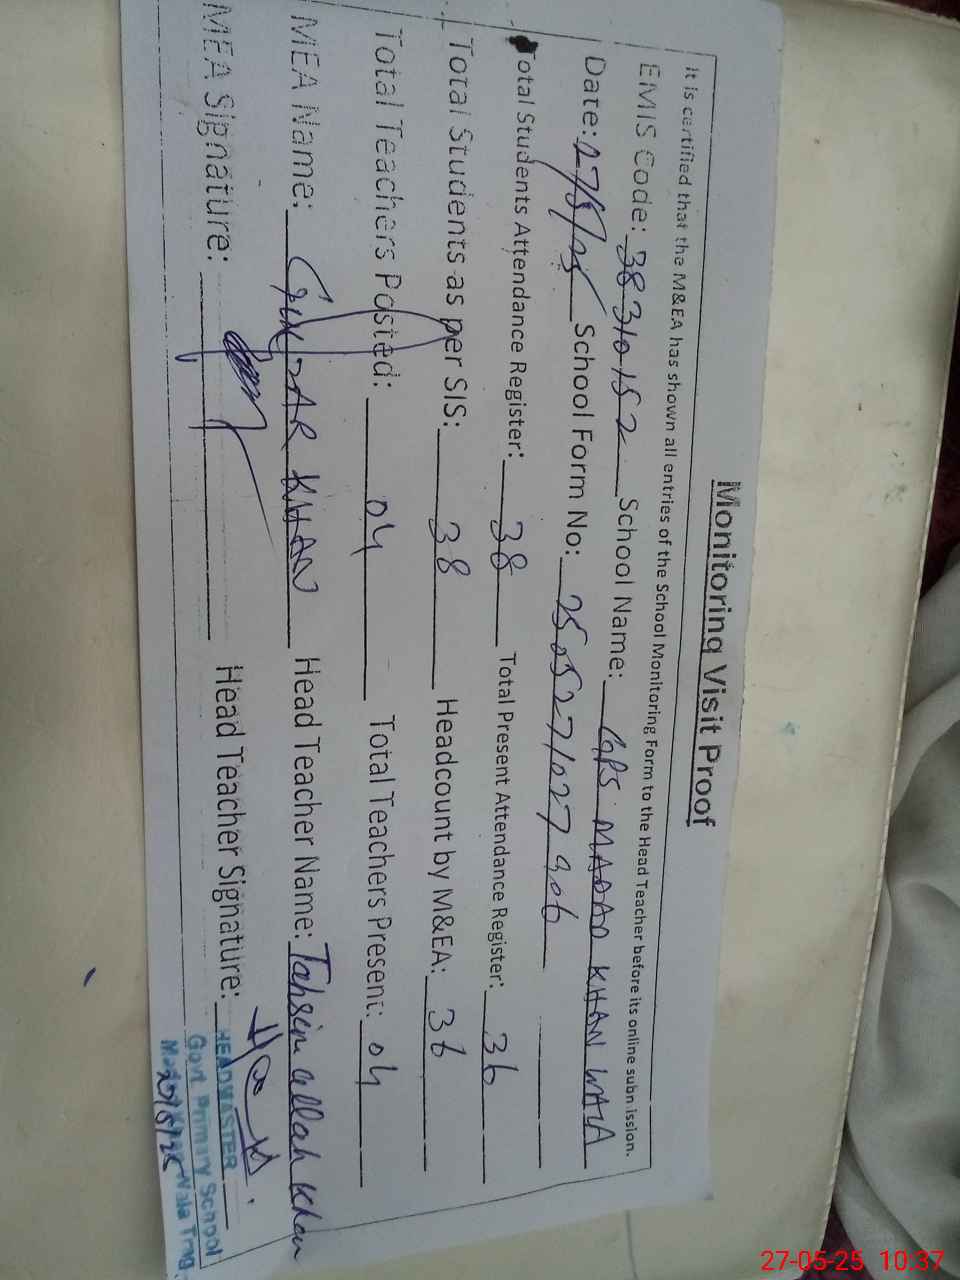 Monitoring Visit Proof
It is certified that the M&EA has shown all entries of the School Monitoring Form to the Head Teacher before its online submission.
EMIS Code: 38310152 School Name: GPS MADAD KHAN WALA
Date: 27/5/25 School Form No: 2505271027306
Total Students Attendance Register: 38 Total Present Attendance Register: 36
Total Students as per SIS: 38 Headcount by M&EA: 36
Total Teachers Posted: 04 Total Teachers Present: 04
MEA Name: GULZAR KHAN Head Teacher Name: Tahsin ullah Khan
MEA Signature: Head Teacher Signature:
HEADMASTER
Govt. Primary School
Wala Trag
27/5/25
27-05-25 10:37